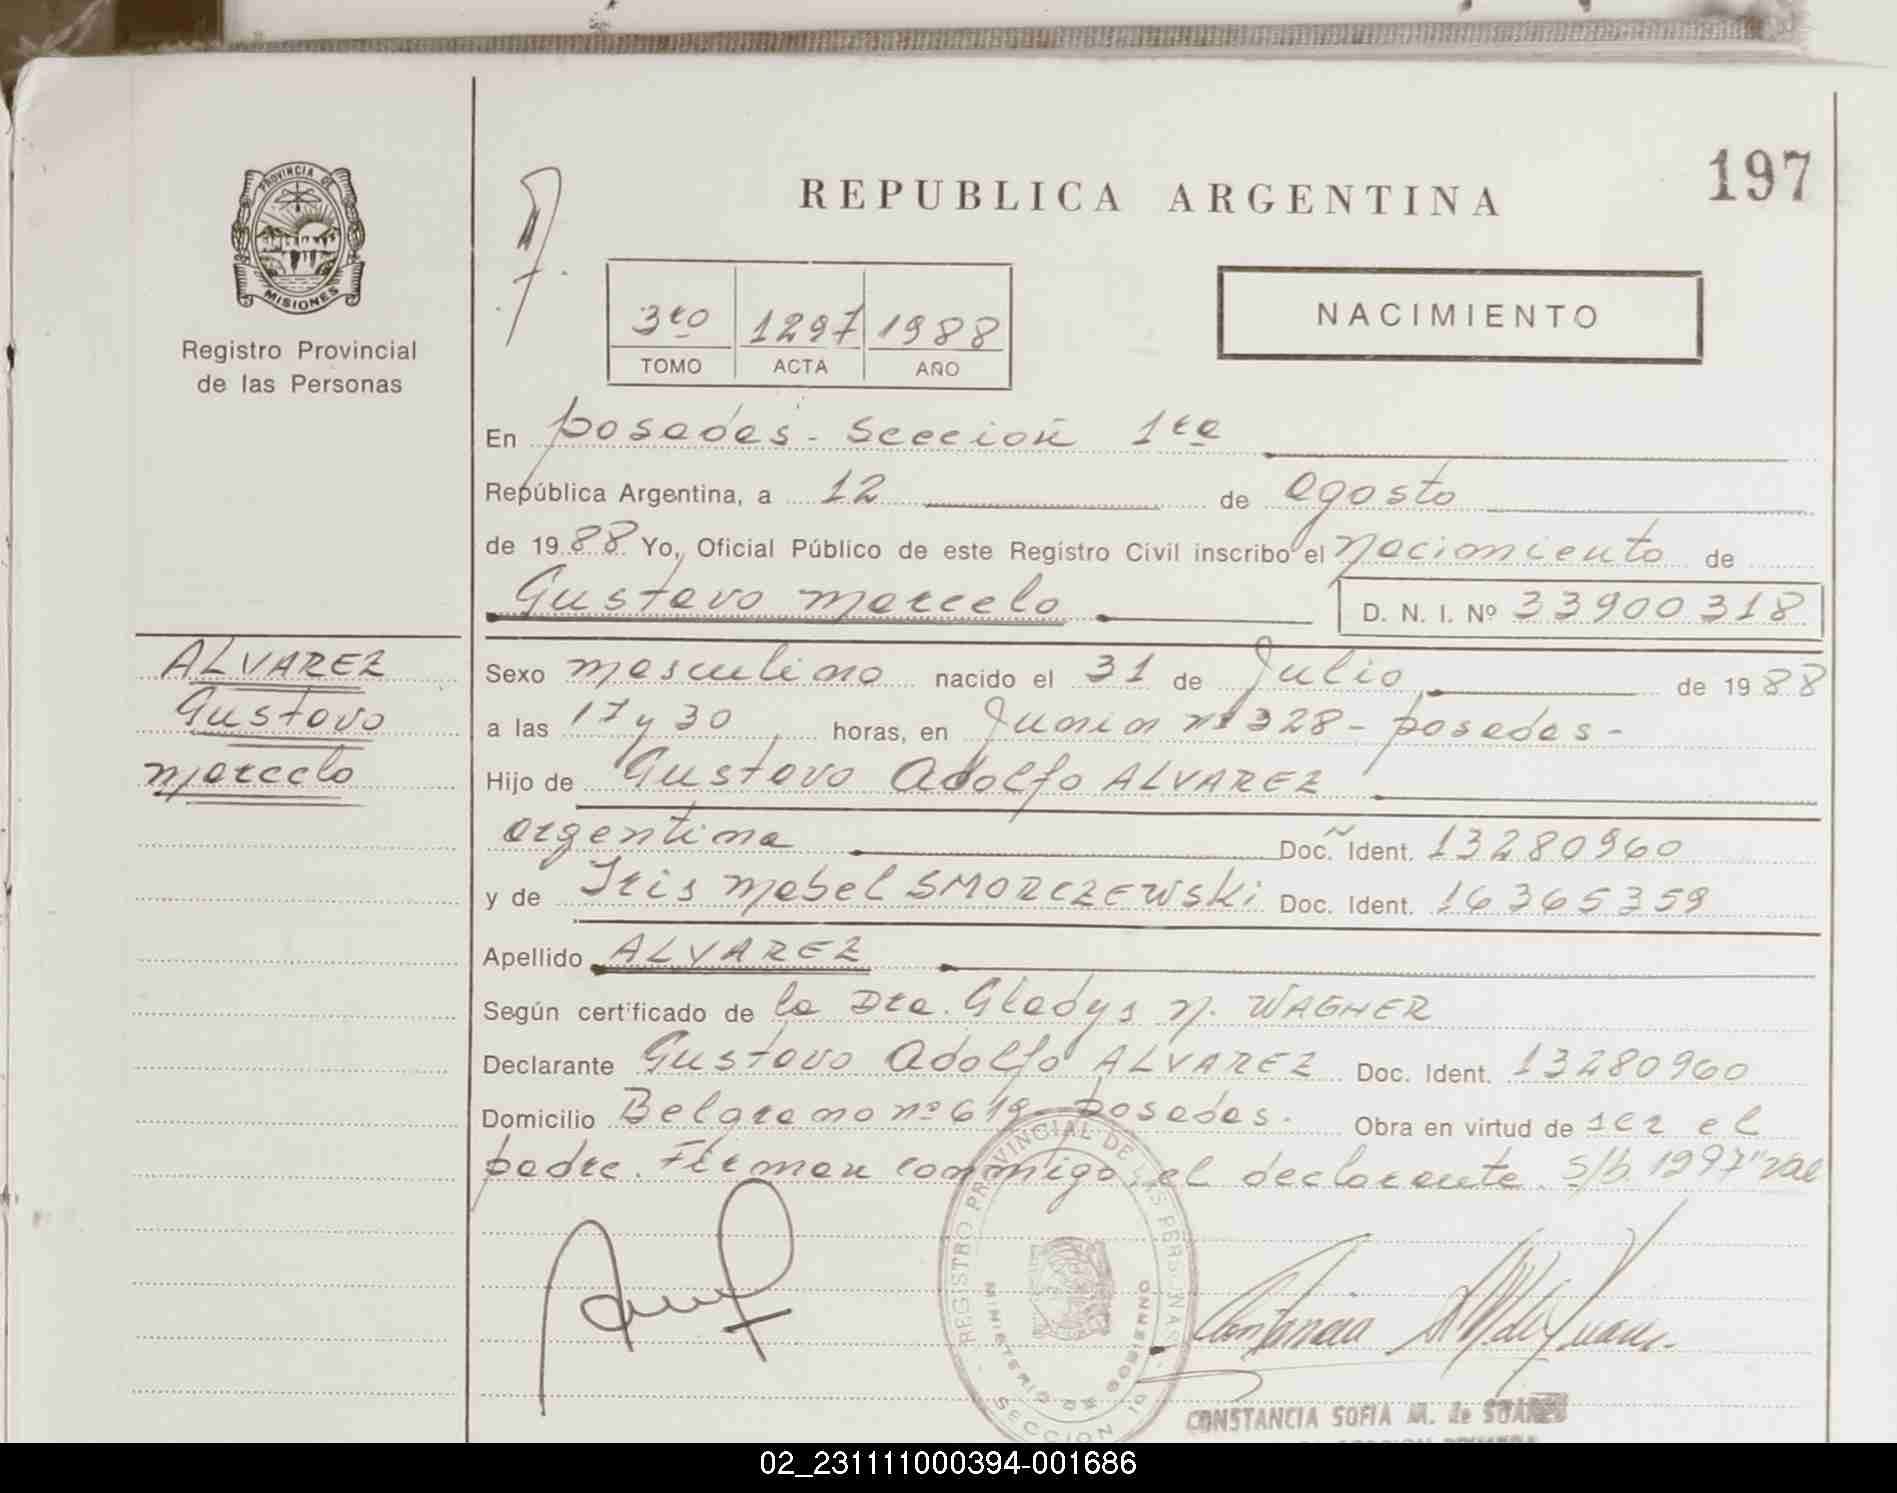 PROVINCIA DE
MISIONES
Registro Provincial
de las Personas
ALVAREZ
Gustavo
Marcelo
REPUBLICA ARGENTINA
197
3ro 1297 1988
TOMO ACTA AÑO
NACIMIENTO
En Posadas - Sección 1ra
República Argentina, a 12 de agosto
de 1988 Yo, Oficial Público de este Registro Civil inscribo el nacimiento de
Gustavo Marcelo D. N. I. Nº 33900318
Sexo masculino nacido el 31 de Julio de 1988
a las 17 y 30 horas, en Junin nº 328 - Posadas -
Hijo de Gustavo Adolfo ALVAREZ
argentina Doc. Ident. 13280960
y de Iris Mabel SMORCZEWSKi Doc. Ident. 16365359
Apellido ALVAREZ
Según certificado de la Dra. Gladys N. WAGNER
Declarante Gustavo Adolfo ALVAREZ Doc. Ident. 13280960
Domicilio Belgrano nº 619 - Posadas. Obra en virtud de ser el
padre. Firman conmigo, el declarante. S/b. 1297" vale
REGISTRO PROVINCIAL DE LAS PERSONAS
MINISTERIO DE GOBIERNO
SECCION 1a
CONSTANCIA SOFIA M. de SUAREZ
02_231111000394-001686